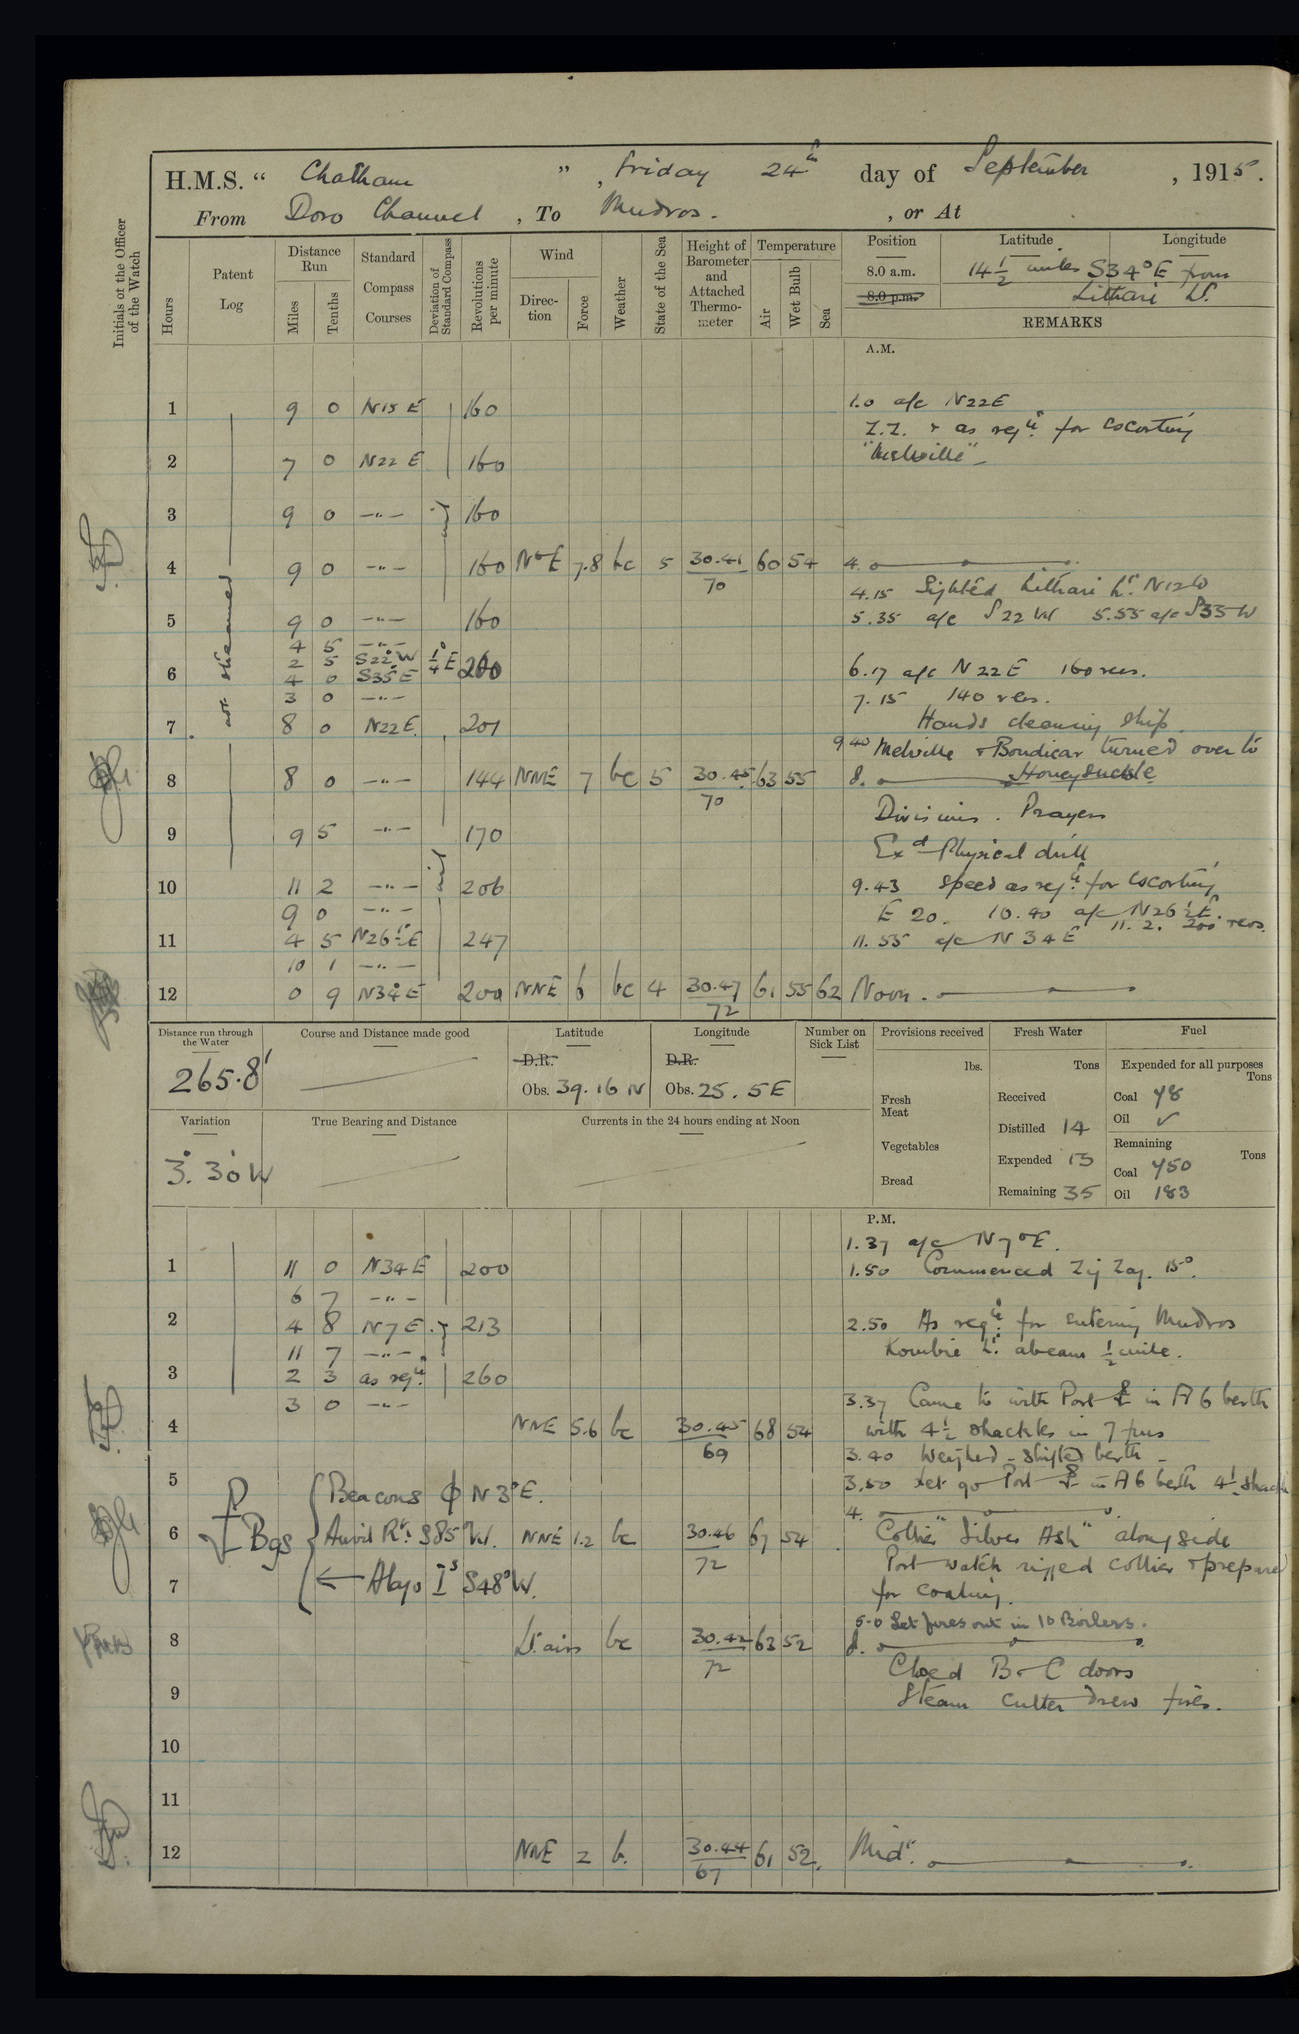 H.M.S. " Chatham ", Friday 24th day of September, 1915.
From Doro Channel, To Mudros. , or At
Initials of the Officer of the Watch
Hours
Patent Log
Distance Run
Miles
Tenths
Standard Compass Courses
Deviation of Standard Compass
Revolutions per minute
Wind
Direction
Force
Weather
State of the Sea
Height of Barometer and Attached Thermometer
Temperature
Air
Wet Bulb
Sea
Position
Latitude
Longitude
8.0 a.m. 14½ miles S34°E from
8.0 p.m. Lithari Lt.
REMARKS
A.M.
1 9 0 N15E 160 1.0 a/c N22E
Z.Z. & as reqd. for escorting
2 7 0 N22E 160 "Melville"
3 9 0 —"— 160
not streamed
4 9 0 —"— 160 NbE 7.8 bc 5 30.41/70 60 54 4.
4.15 Sighted Lithari Lt. N12W
5 9 0 —"— 160 5.35 a/c S22W 5.55 a/c S35W
4 5 —"—
2 5 S22°W ¼°E
6 4 0 S35°E 200 6.17 a/c N22E 160 revs.
3 0 —"— 7.15 140 revs.
7 8 0 N22E 201 Hands cleaning ship
9.40 Melville & Boudicar turned over to
8 8 0 —"— 144 NNE 7 bc 5 30.45/70 63 55 8. Honeysuckle
Divisions. Prayers
9 9 5 —"— 170
Exd Physical drill
10 11 2 —"— nil 206 9.43 Speed as reqd. for escorting
9 0 —"— E 20. 10.40 a/c N26½E.
11 4 5 N26½°E 247 11.2. 200 revs.
11.55 a/c N34E
10 1 —"—
12 0 9 N34°E 200 NNE 6 bc 4 30.47/72 61 55 62 Noon.
Distance run through the Water
265.8'
Course and Distance made good
Latitude
D.R.
Obs. 39.16 N
Longitude
D.R.
Obs. 25.5E
Number on Sick List
Provisions received
lbs.
Fresh Meat
Vegetables
Bread
Fresh Water
Tons
Received
Distilled 14
Expended 15
Remaining 35
Fuel
Expended for all purposes
Tons
Coal 48
Oil ✓
Remaining
Tons
Coal 450
Oil 183
Variation
3°.30'W
True Bearing and Distance
Currents in the 24 hours ending at Noon
P.M.
1.37 a/c N7°E.
1 11 0 N34E 200 1.50 Commenced Zig Zag. 15°.
6 7 —"—
2 4 8 N7E 213 2.50 As reqd. for entering Mudros
11 7 —"— Kombie Lt. abeam ½ mile.
3 2 3 as reqd. 260
3 0 —"— 3.37 Came to with Port ⚓ in A6 berth
4 NNE 5.6 bc 30.45/69 68 54 with 4½ shackles in 7 fms
3.40 Weighed - Shifted berth -
5 3.50 Let go Port ⚓ in A6 berth 4½ shack
⚓ Bgs { Beacons ϕ N3°E. 4.
6 Anvil Rk. S85°W. NNE 1.2 bc 30.46/72 67 54 Collier "Silver Ash" alongside
Port watch rigged collier & prepared
7 ← Alogo Is S48°W. for coaling.
5.0 Let fires out in 10 Boilers.
8 Lt. airs bc 30.42/72 63 52 8.
Closed B & C doors
9 Steam cutter drew fires.
10
11
12 NNE 2 b. 30.44/67 61 52. Midt.